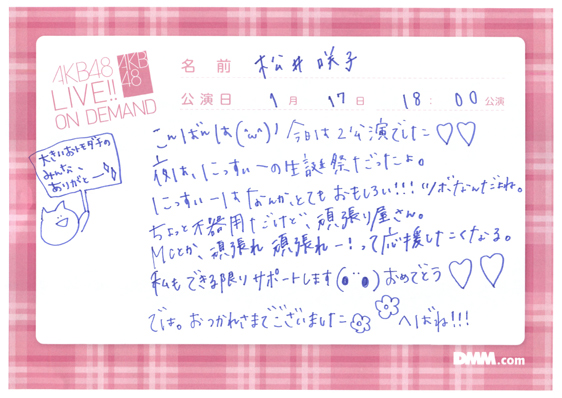 AKB48
LIVE!!
ON DEMAND
AKB
48
名前 松井咲子
公演日 9月17日 18:00公演
大きいおトモダチの
みんな、
ありがとー
こんばんは(^ω^)今日は2公演でしたー♡♡
夜は、にっすぃーの生誕祭だったよ。
にっすぃーはなんか、とてもおもしろい!!!ツボなんだよね。
ちょっと不器用だけど、頑張り屋さん。
MCとか、頑張れ頑張れー!って応援したくなる。
私もできる限りサポートします(●¨●)おめでとう♡♡
では。おつかれさまでございましたー へばね!!!
DMM.com